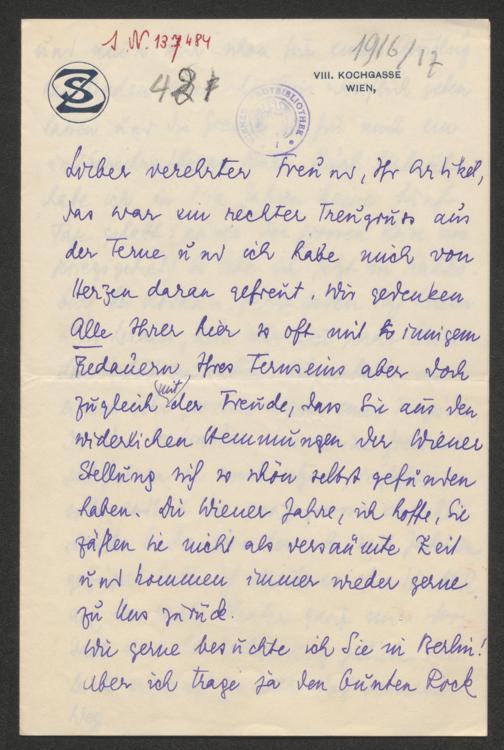 J. N. 137484
1916/17
VIII. KOCHGASSE
WIEN,
SZ
Lieber verehrter Freund, Ihr Artikel,
das war ein rechter Treugruss aus
der Ferne und ich habe mich von
Herzen daran gefreut. Wir gedenken
Alle Ihrer hier so oft mit so innigem
Bedauern Ihres Fernseins aber doch
zugleich mit der Freude, dass Sie aus den
widerlichen Hemmungen der Wiener
Stellung sich so schön selbst gefunden
haben. Die Wiener Jahre, ich hoffe, Sie
zählen sie nicht als versäumte Zeit
und kommen immer wieder gerne
zu uns zurück.
Wie gerne besuchte ich Sie in Berlin!
Aber ich trage ja den bunten Rock